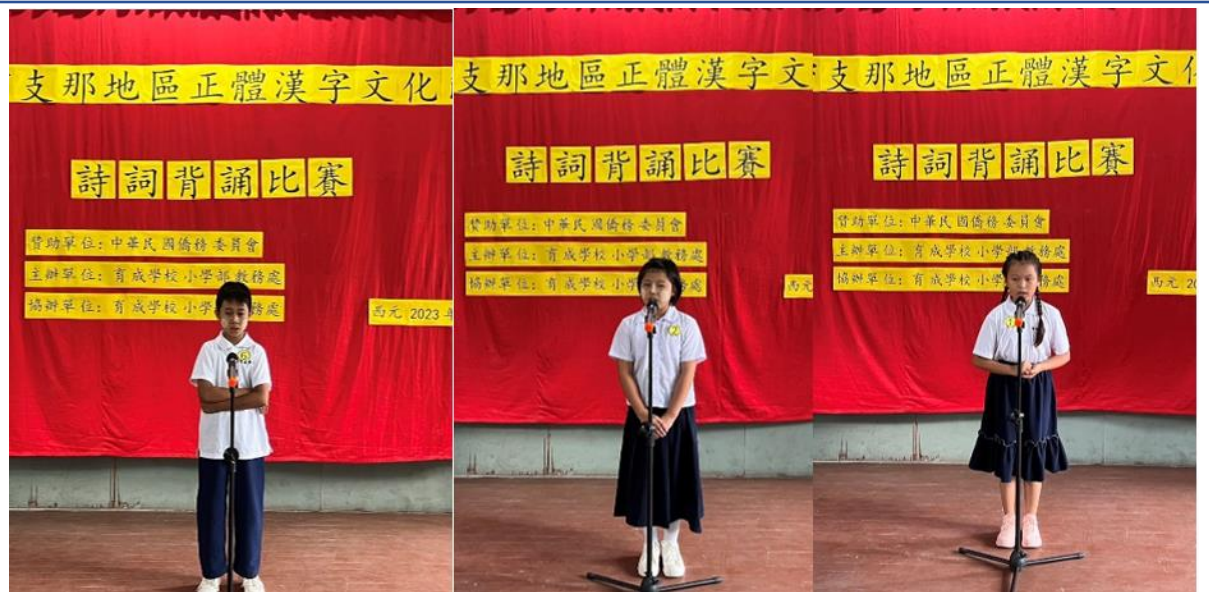 支那地區正體漢字文化
詩詞背誦比賽
贊助單位:中華民國僑務委員會
主辦單位:育成學校小學部教務處
協辦單位:育成學校小學部教務處
西元 2023 年
5
支那地區正體漢字文
詩詞背誦比賽
贊助單位:中華民國僑務委員會
主辦單位:育成學校小學部教務處
協辦單位:育成學校小學 務處
西元
2
支那地區正體漢字文
詩詞背誦比賽
贊助單位:中華民國僑務委員會
主辦單位:育成學校小學部教務處
協辦單位:育成學校小學 教務處
西元 20